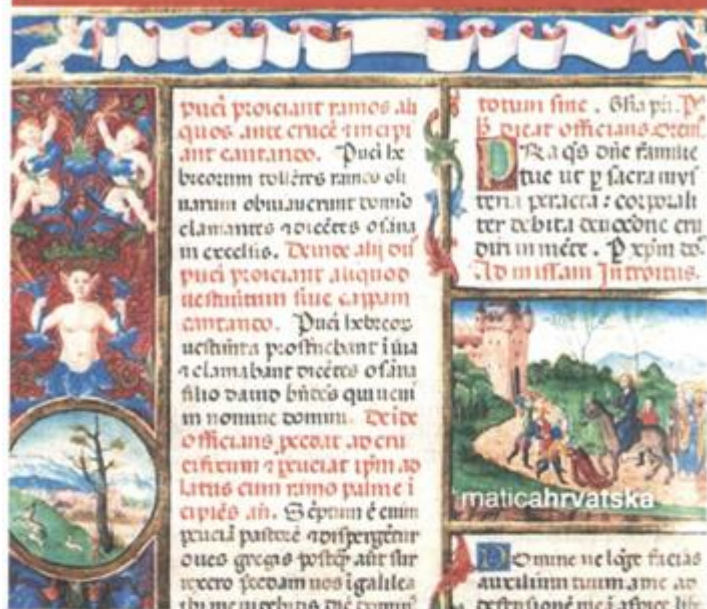 pueri proiciant ramos ali
quos ante crucē ⁊ incipi
ant cantando. Pueri he
breorum tollētes ramos oli
uarum obuiauerunt domīo
clamantes ⁊ dicētes osāna
in excelsis. Deinde alij duo
pueri proiciant aliquod
uestimentum siue cappam
cantando. Pueri hebreoꝝ
uestimēta prosternebant ī uia
⁊ clamabant dicētes osāna
filio dauid bn̄dc̄s qui ueni
in nomine domini. Deīde
officians
latus cum ramo palme ī
cipiēs añ. Sc̄ptum ē enim
pastorē ⁊ dispergētur
oues gregis postq̄
uos ī galilea
totum fine.
dicat officians
q̄s dn̄e familie
tue ut ꝑ sacra mys
teria peracta: corporali
ter debita deuocōne eru
diri in mēte. P xp̄m
Ad missam Introitus.
maticahrvatska
Domine ne lōge facias
auxilium tuum a me ad